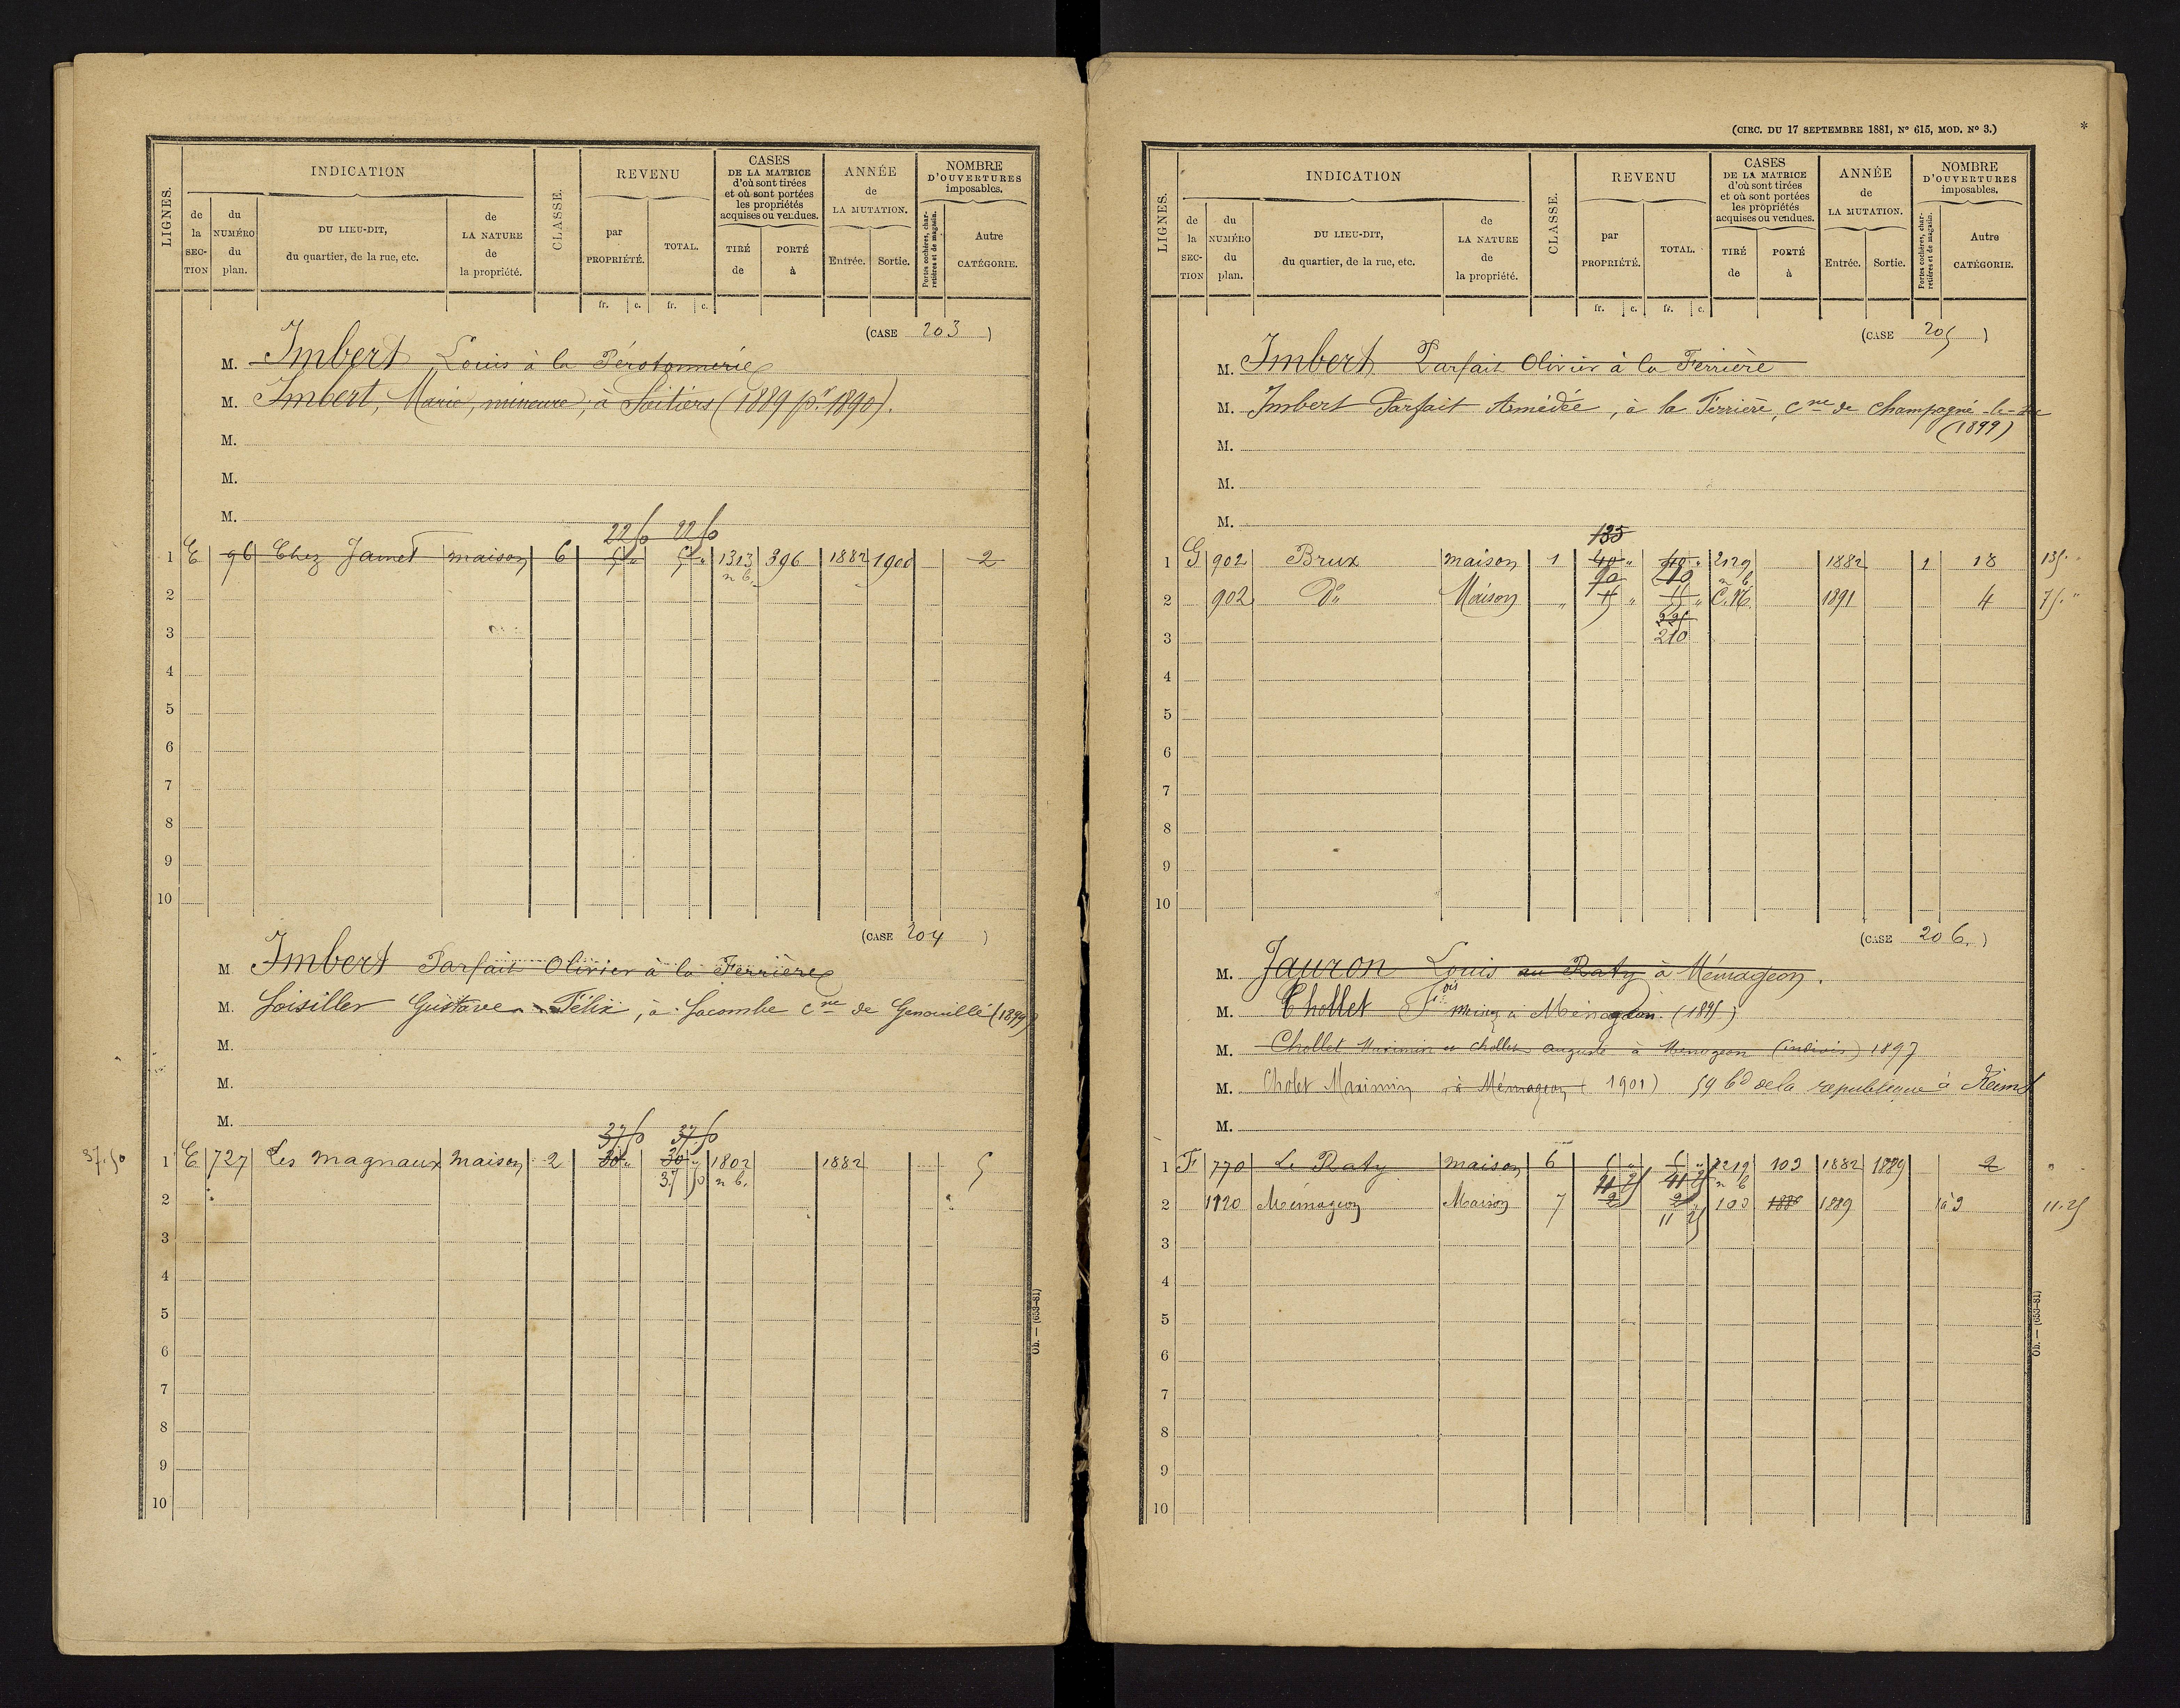 LIGNES.
INDICATION
CLASSE.
REVENU
CASES
DE LA MATRICE
d'où sont tirées
et où sont portées
les propriétés
acquises ou vendues.
ANNÉE
de
LA MUTATION.
NOMBRE
D'OUVERTURES
imposables.
de la SECTION
du NUMÉRO du plan.
DU LIEU-DIT,
du quartier, de la rue, etc.
de LA NATURE de la propriété.
par PROPRIÉTÉ.
TOTAL.
TIRÉ de
PORTÉ à
Entrée.
Sortie.
Portes cochères, charretières et de magasin.
Autre CATÉGORIE.
fr. c. fr. c.
(CASE 203)
M. Imbert Louis à la Pérotonnerie
M. Imbert, Marie, mineure, à Poitiers (1889 pr 1890).
M.
M.
M.
22 50 22 50
1 E 96 Chez Jamet maison 6 5 " 5 " 1313 396 1882 1900 2
n b.
2
3
4
5
6
7
8
9
10
(CASE 204)
M. Imbert Parfait Olivier à la Ferrière
M. Loisiller Gustave Félix, à Lacombe cne de Genouillé (1899)
M.
M.
M.
37.50 37.50
37.50 1 E 727 Les magnaux maison 2 30 " 30 " 1802 1882 5
37 50 n b.
2
3
4
5
6
7
8
9
10
Ob. — (653-81)
(CIRC. DU 17 SEPTEMBRE 1881, N° 615, MOD. N° 3.)
*
LIGNES.
INDICATION
CLASSE.
REVENU
CASES
DE LA MATRICE
d'où sont tirées
et où sont portées
les propriétés
acquises ou vendues.
ANNÉE
de
LA MUTATION.
NOMBRE
D'OUVERTURES
imposables.
de la SECTION
du NUMÉRO du plan.
DU LIEU-DIT,
du quartier, de la rue, etc.
de LA NATURE de la propriété.
par PROPRIÉTÉ.
TOTAL.
TIRÉ de
PORTÉ à
Entrée.
Sortie.
Portes cochères, charretières et de magasin.
Autre CATÉGORIE.
fr. c. fr. c.
(CASE 205)
M. Imbert Parfait Olivier à la Ferrière
M. Imbert Parfait Amédée, à la Ferrière, cne de Champagné-le-Sec
(1899)
M.
M.
M.
135
1 G 902 Brux maison 1 40 " 2129 1882 1 18 135 "
n b
2 902 do Maison " " C.N. 1891 4 75. "
225
3 210
4
5
6
7
8
9
10
(CASE 206.)
M. Jauron Louis au Raty à Mémageon.
M. Chollet Fois à Mémageon. (1895)
M. Chollet Maximin et chollet auguste à Memageon (indivis) 1897
M. Cholet Maximin à Mémageon (1901) 59 bd de la republique à Reims
M.
1 F 770 Le Raty maison 6 2219 103 1882 1889 2 "
n b
2 1120 Mémageon Maison 7 2 2 103 1886 1889 3 11.25
11 25
3
4
5
6
7
8
9
10
Ob. — (653-81)